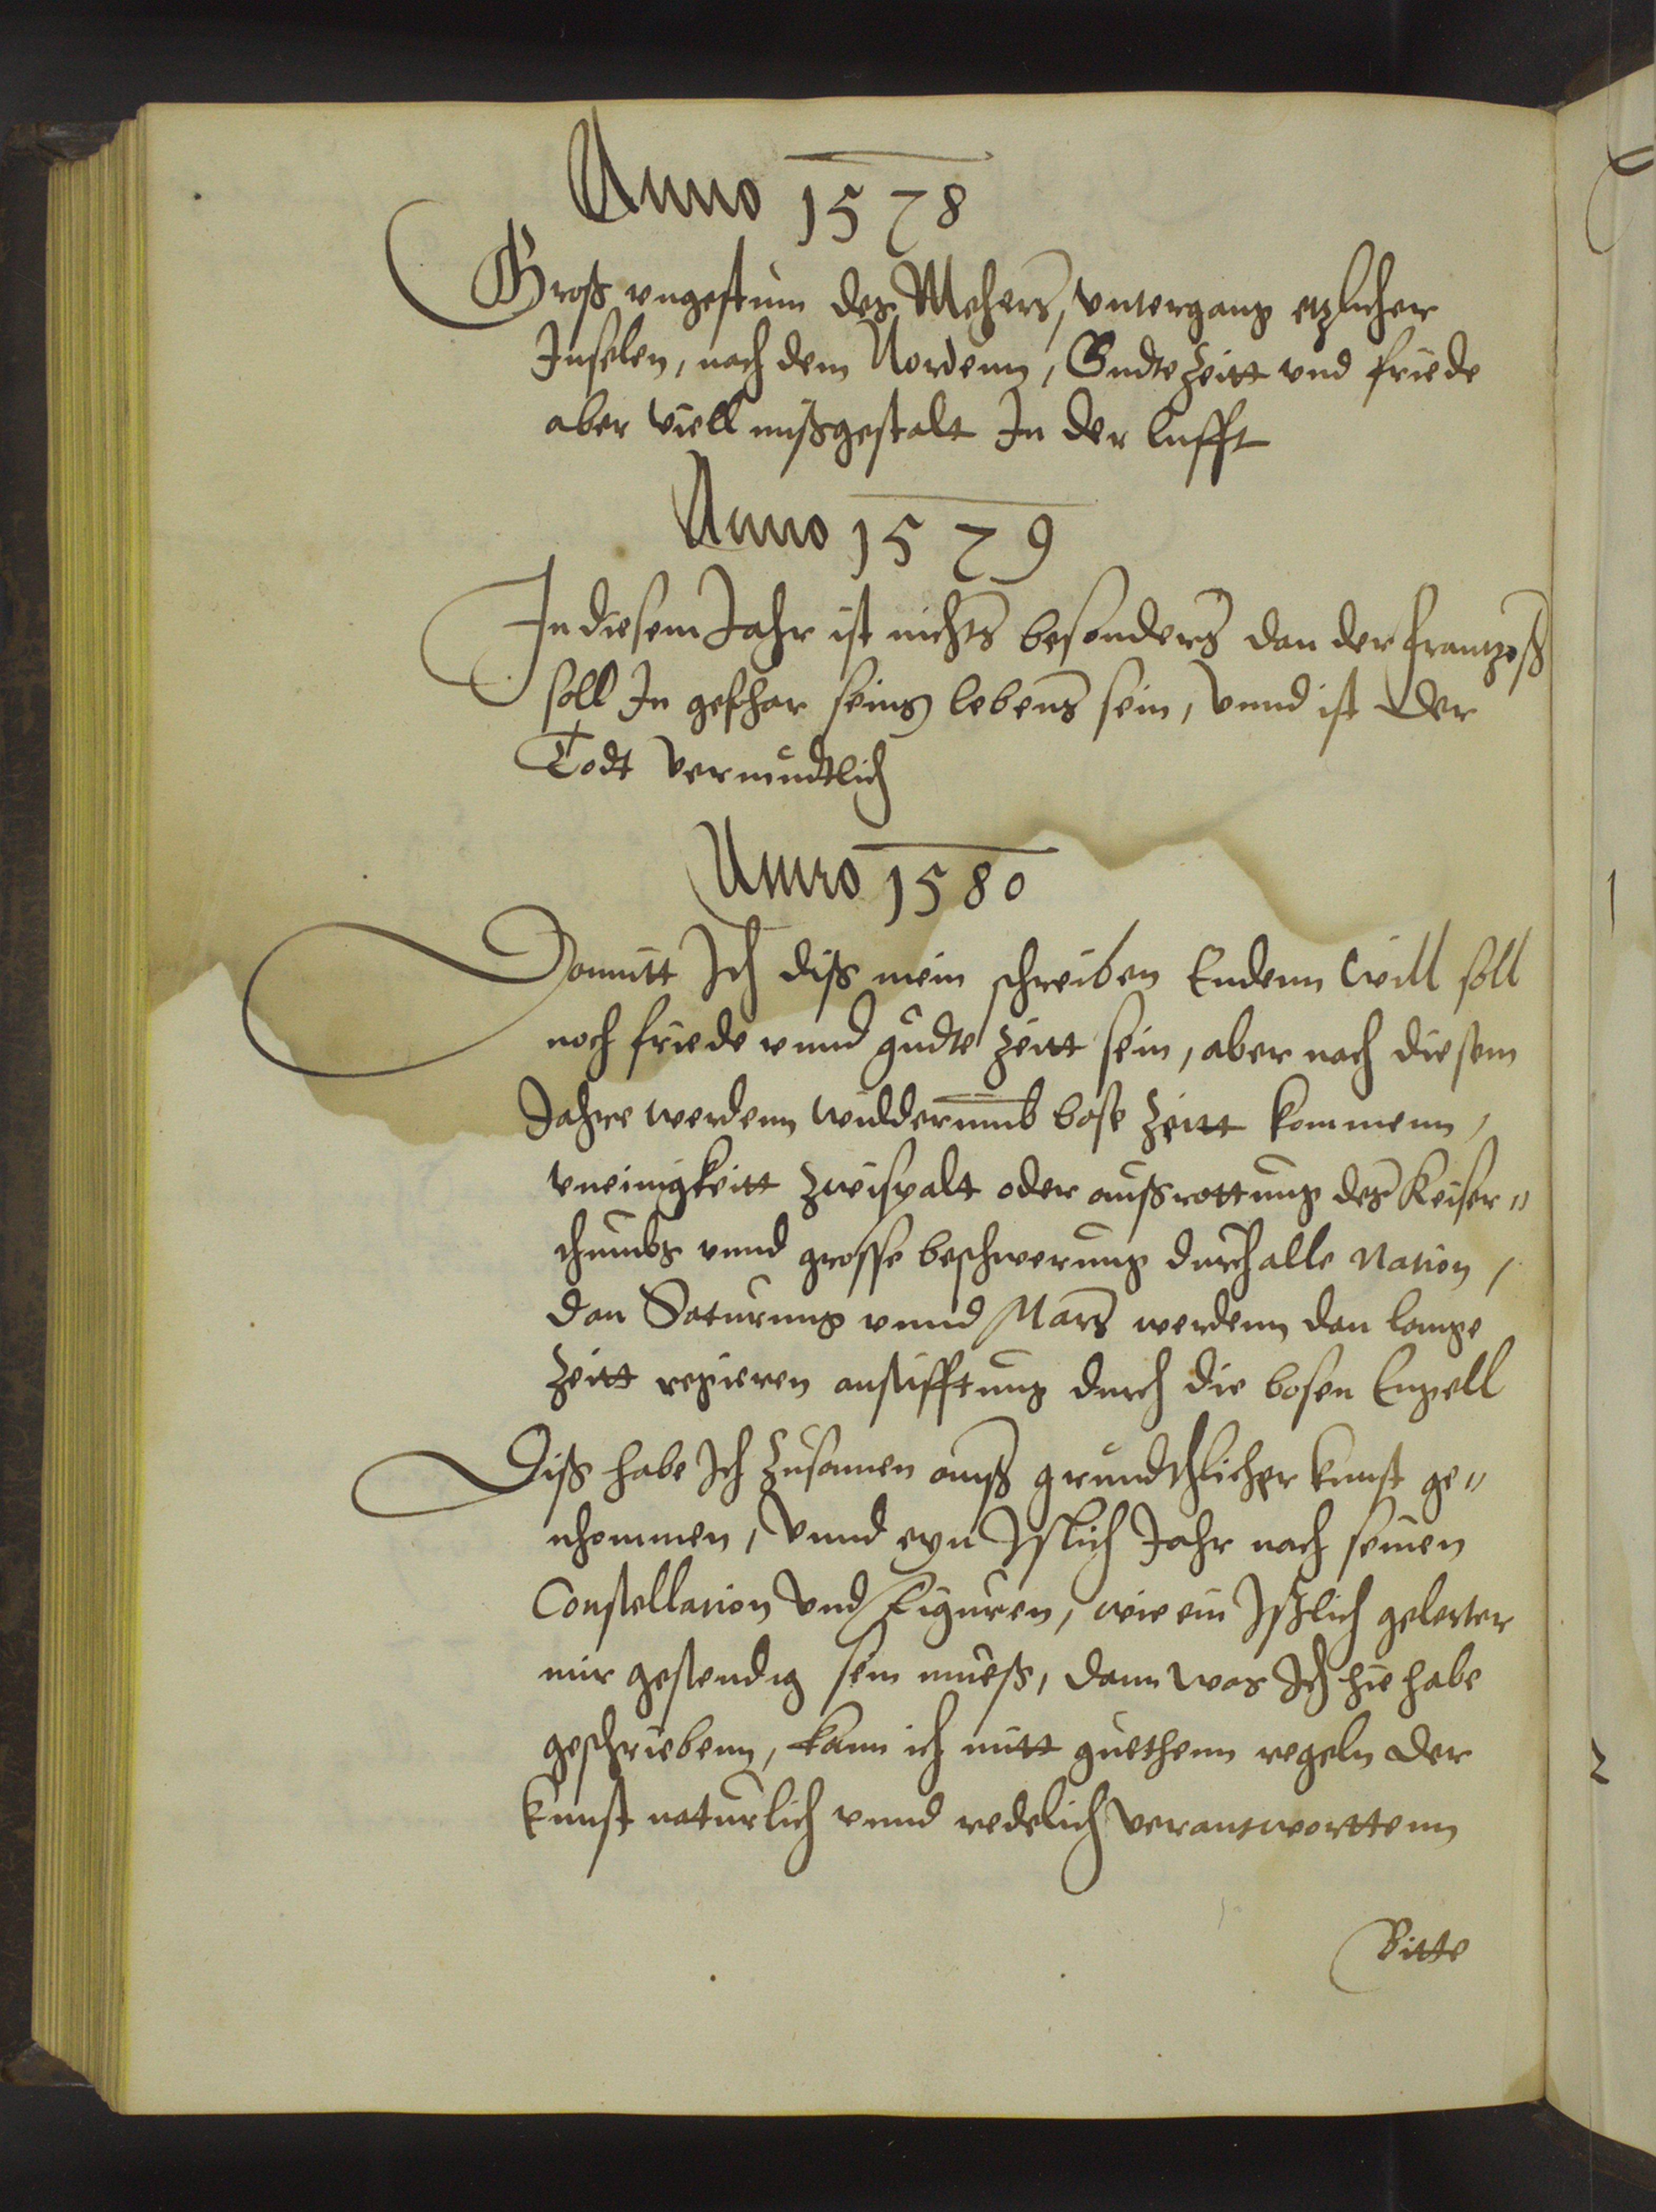 Anno 1578
Groß ungestüm des Mehers, Untergang etzlicher
Inselen, nach dem Nordenn, Gudte Zeitt und friede
aber viell mißgestalt In der lufft
Anno 1579
In diesem Jahr ist nichts besonders dan der frantzoß
soll In gefhar seins lebens sein, Vnnd ist der
Todt vermudtlich
Anno 1580
Domitt Ich diß mein schreiben Endenn will soll
noch friede vnnd gudte Zeitt sein, aber nach diesem
Jahre werdenn widderumb bose Zeitt kommenn,
vneinigkeitt Zweispalt oder außrottung des Keiser„
thumbs vnnd grosse beschwerung durch alle Nation,
dan Saturnus vnnd Mars werdenn dan lange
Zeitt regieren anstifftung durch die bosen Engell
Diß habe Ich Zusamen auß grundtlicher kunst ge„
nhommen, Vnnd eyn Islich Jahr nach seinen
Constellation Vnd Figuren, wie ein Ißlich gelerter
mir gestendig sein mueß, dann was Ich hie habe
geschriebenn, kann ich mitt guethenn regeln der
kunst naturlich vnnd redelich verantworttenn
Bitte